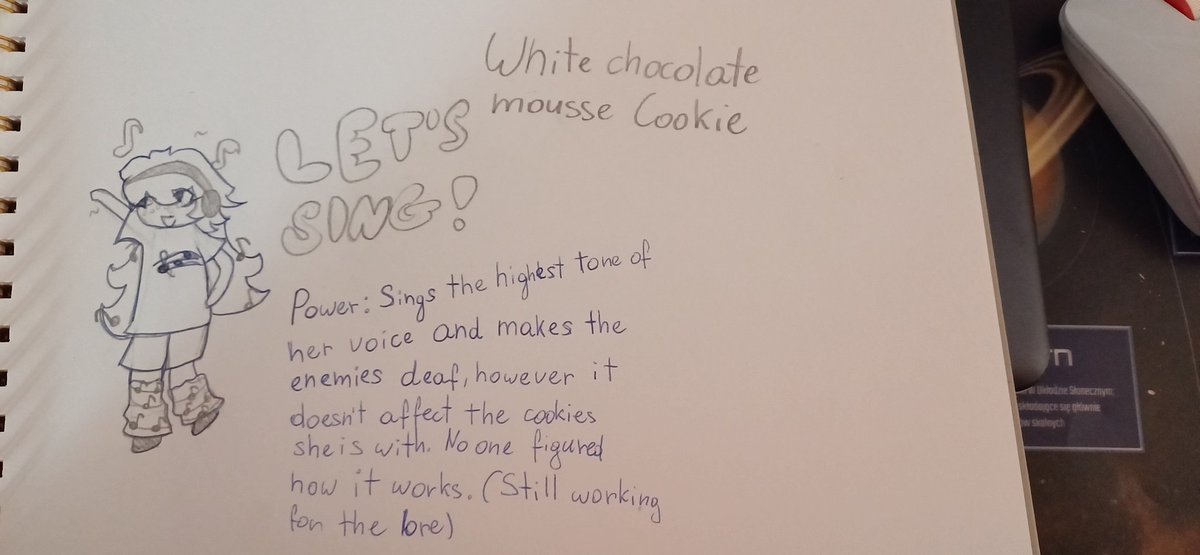 White chocolate
mousse Cookie
LET'S
SING!
Power: Sings the highest tone of
her voice and makes the
enemies deaf, however it
doesn't affect the cookies
she is with. No one figured
how it works. (Still working
fon the lore)
w Układzie Słonecznym:
składające się głównie
ów skalnych